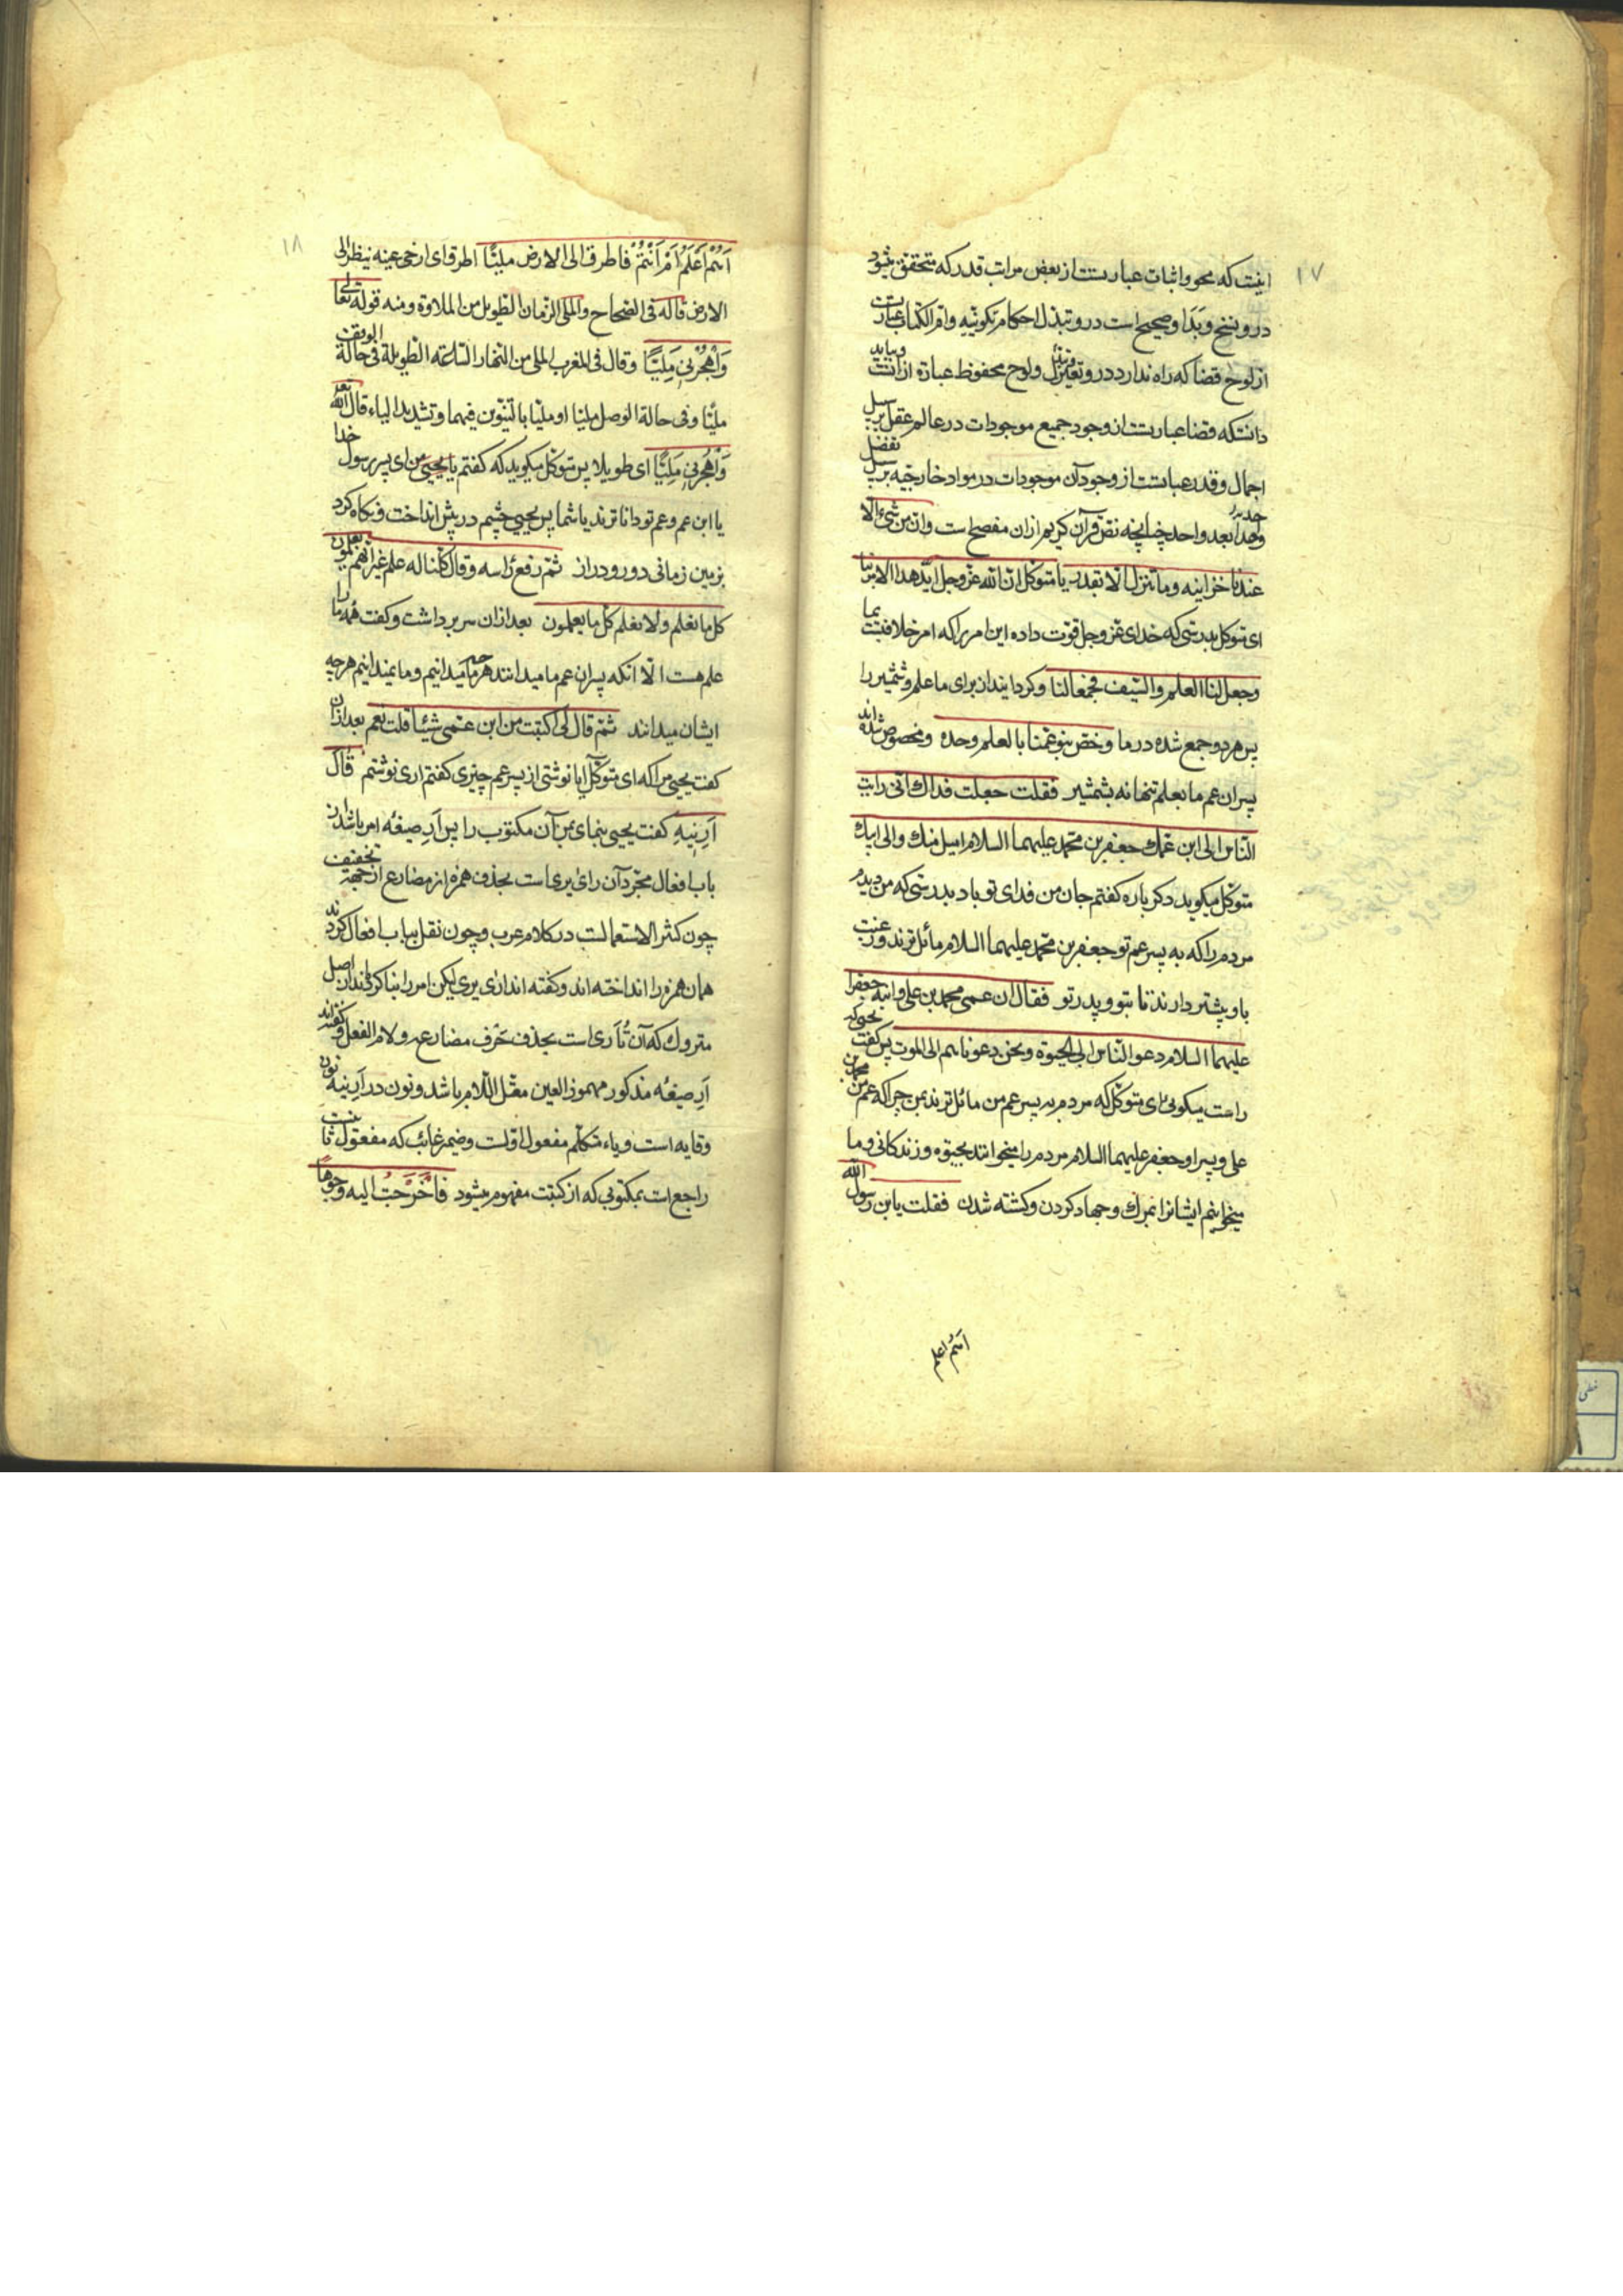 ۱۷
اینست که محو و اثبات عبارتست از بعض مراتب قدر که متحقق میشود
در و نسخ و بدا و صحیح است در و تبدل احکام تکوینیه و ام الکتاب عبارتست
از لوح قضا که راه ندارد در و تغیر و تبدل و لوح محفوظ عبارة از آنست و بباید
دانست که قضا عبارتست از وجود جمیع موجودات در عالم عقل بر سبیل
اجمال و قدر عبارتست از وجود آن موجودات در مواد خارجیه بر سبیل تفصیل
واحدا بعد واحد چنانچه نص قرآن کریم از ان مفصح است وان من شیء الا
عندنا خزاینه وما ننزله الا بقدر یا متوکل ان الله عز وجل اید هذا الامر بنا
ای متوکل بدرستی که خدای عز وجل قوت داده این امر را که امر خلافتست بما
وجعل لنا العلم والسیف فجمعا لنا و کردانیده از برای ما علم و شمشیر را
پس هر دو جمع شده در ما وخص بنو عمنا بالعلم وحده و مخصوص شده اند
پسران عم ما بعلم تنها نه بشمشیر فقلت جعلت فداک انی رایت
الناس الی ابن عمک جعفر بن محمد علیهما السلام امیل منک والی ابیک
متوکل میکوید دکر باره کفتم جان من فدای تو باد بدرستی که من دیدم
مردم را که به پسر عم تو جعفر بن محمد علیهما السلام مائل ترند و رغبت
باو بیشتر دارند تا بتو و پدر تو فقال ان عمی محمد بن علی وابنه جعفرا
علیهما السلام دعوا الناس الی الحیوة ونحن دعوناهم الی الموت پس کفت یحیی که
راست میکوئی ای متوکل که مردم به پسر عم من مائل ترند بمن چرا که عم من محمد بن
علی و پسر او جعفر علیهما السلام مردم را میخوانند بحیوة و زندکانی و ما
میخوانیم ایشانرا بمرک و جهاد کردن و کشته شدن فقلت یابن رسول الله
أهم اعلم
۱۸
أهُمْ أعْلَمُ أمْ أنْتُمْ فاطرق الی الارض ملیًّا اطرق ای ارخی عینه ینظر الی
الارض قاله فی الصحاح والملی الزمان الطویل من الملاوة ومنه قوله تعالی
وَاهْجُرْنِی مَلِیًّا وقال فی المغرب الملی من النهار الساعة الطویلة فی حالة الوقف
ملیّا وفی حالة الوصل ملیّا او ملیّا بالتنوین فیهما وتشدید الیاء قال الله تعالی
وَاهْجُرْنِی مَلِیًّا ای طویلا پس متوکل میکوید که کفتم یا یحیی من ای پسر رسول خدا
یا ابن عم و عم تو داناترند یا شما پس یحیی چشم در پیش انداخت و نکاه کرد
بزمین زمانی دور و دراز ثم رفع راسه وقال کلنا له علم غیر انهم یعلمون
کل ما نعلم ولا نعلم کل ما یعلمون بعد از ان سر برداشت و کفت همه ما را
علم هست الا انکه پسران عم ما میدانند هر چه ما میدانیم و ما نمیدانیم هر چه
ایشان میدانند ثم قال لی اکتبت من ابن عمی شیئا قلت نعم بعد از ان
کفت یحیی مرا که ای متوکل آیا نوشتی از پسر عم چیزی کفتم اری نوشتم قال
أرِنِیهِ کفت یحیی بنمای بمن آن مکتوب را پس أرِ صیغهٔ امر باشد از
باب افعال مجرد آن رای یری است بحذف همزه از مضارع از جهة تخفیف
چون کثیر الاستعمالست در کلام عرب و چون نقل بباب افعال کردند
همان همزه را انداخته اند و کفته اند اری یری لیکن امر را بنا کرده اند از اصل
متروک که آن تُأرِی است بحذف حرف مضارعه و لام الفعل و کفته اند
أرِ صیغهٔ مذکور مهموز العین معتل اللام باشد و نون در أرِنیه نون
وقایه است و یاء متکلم مفعول اولست و ضمیر غائب که مفعول ثانیست
راجع است بمکتوبی که از کتبت مفهوم میشود فأخْرَجْتُ الیه وجوها